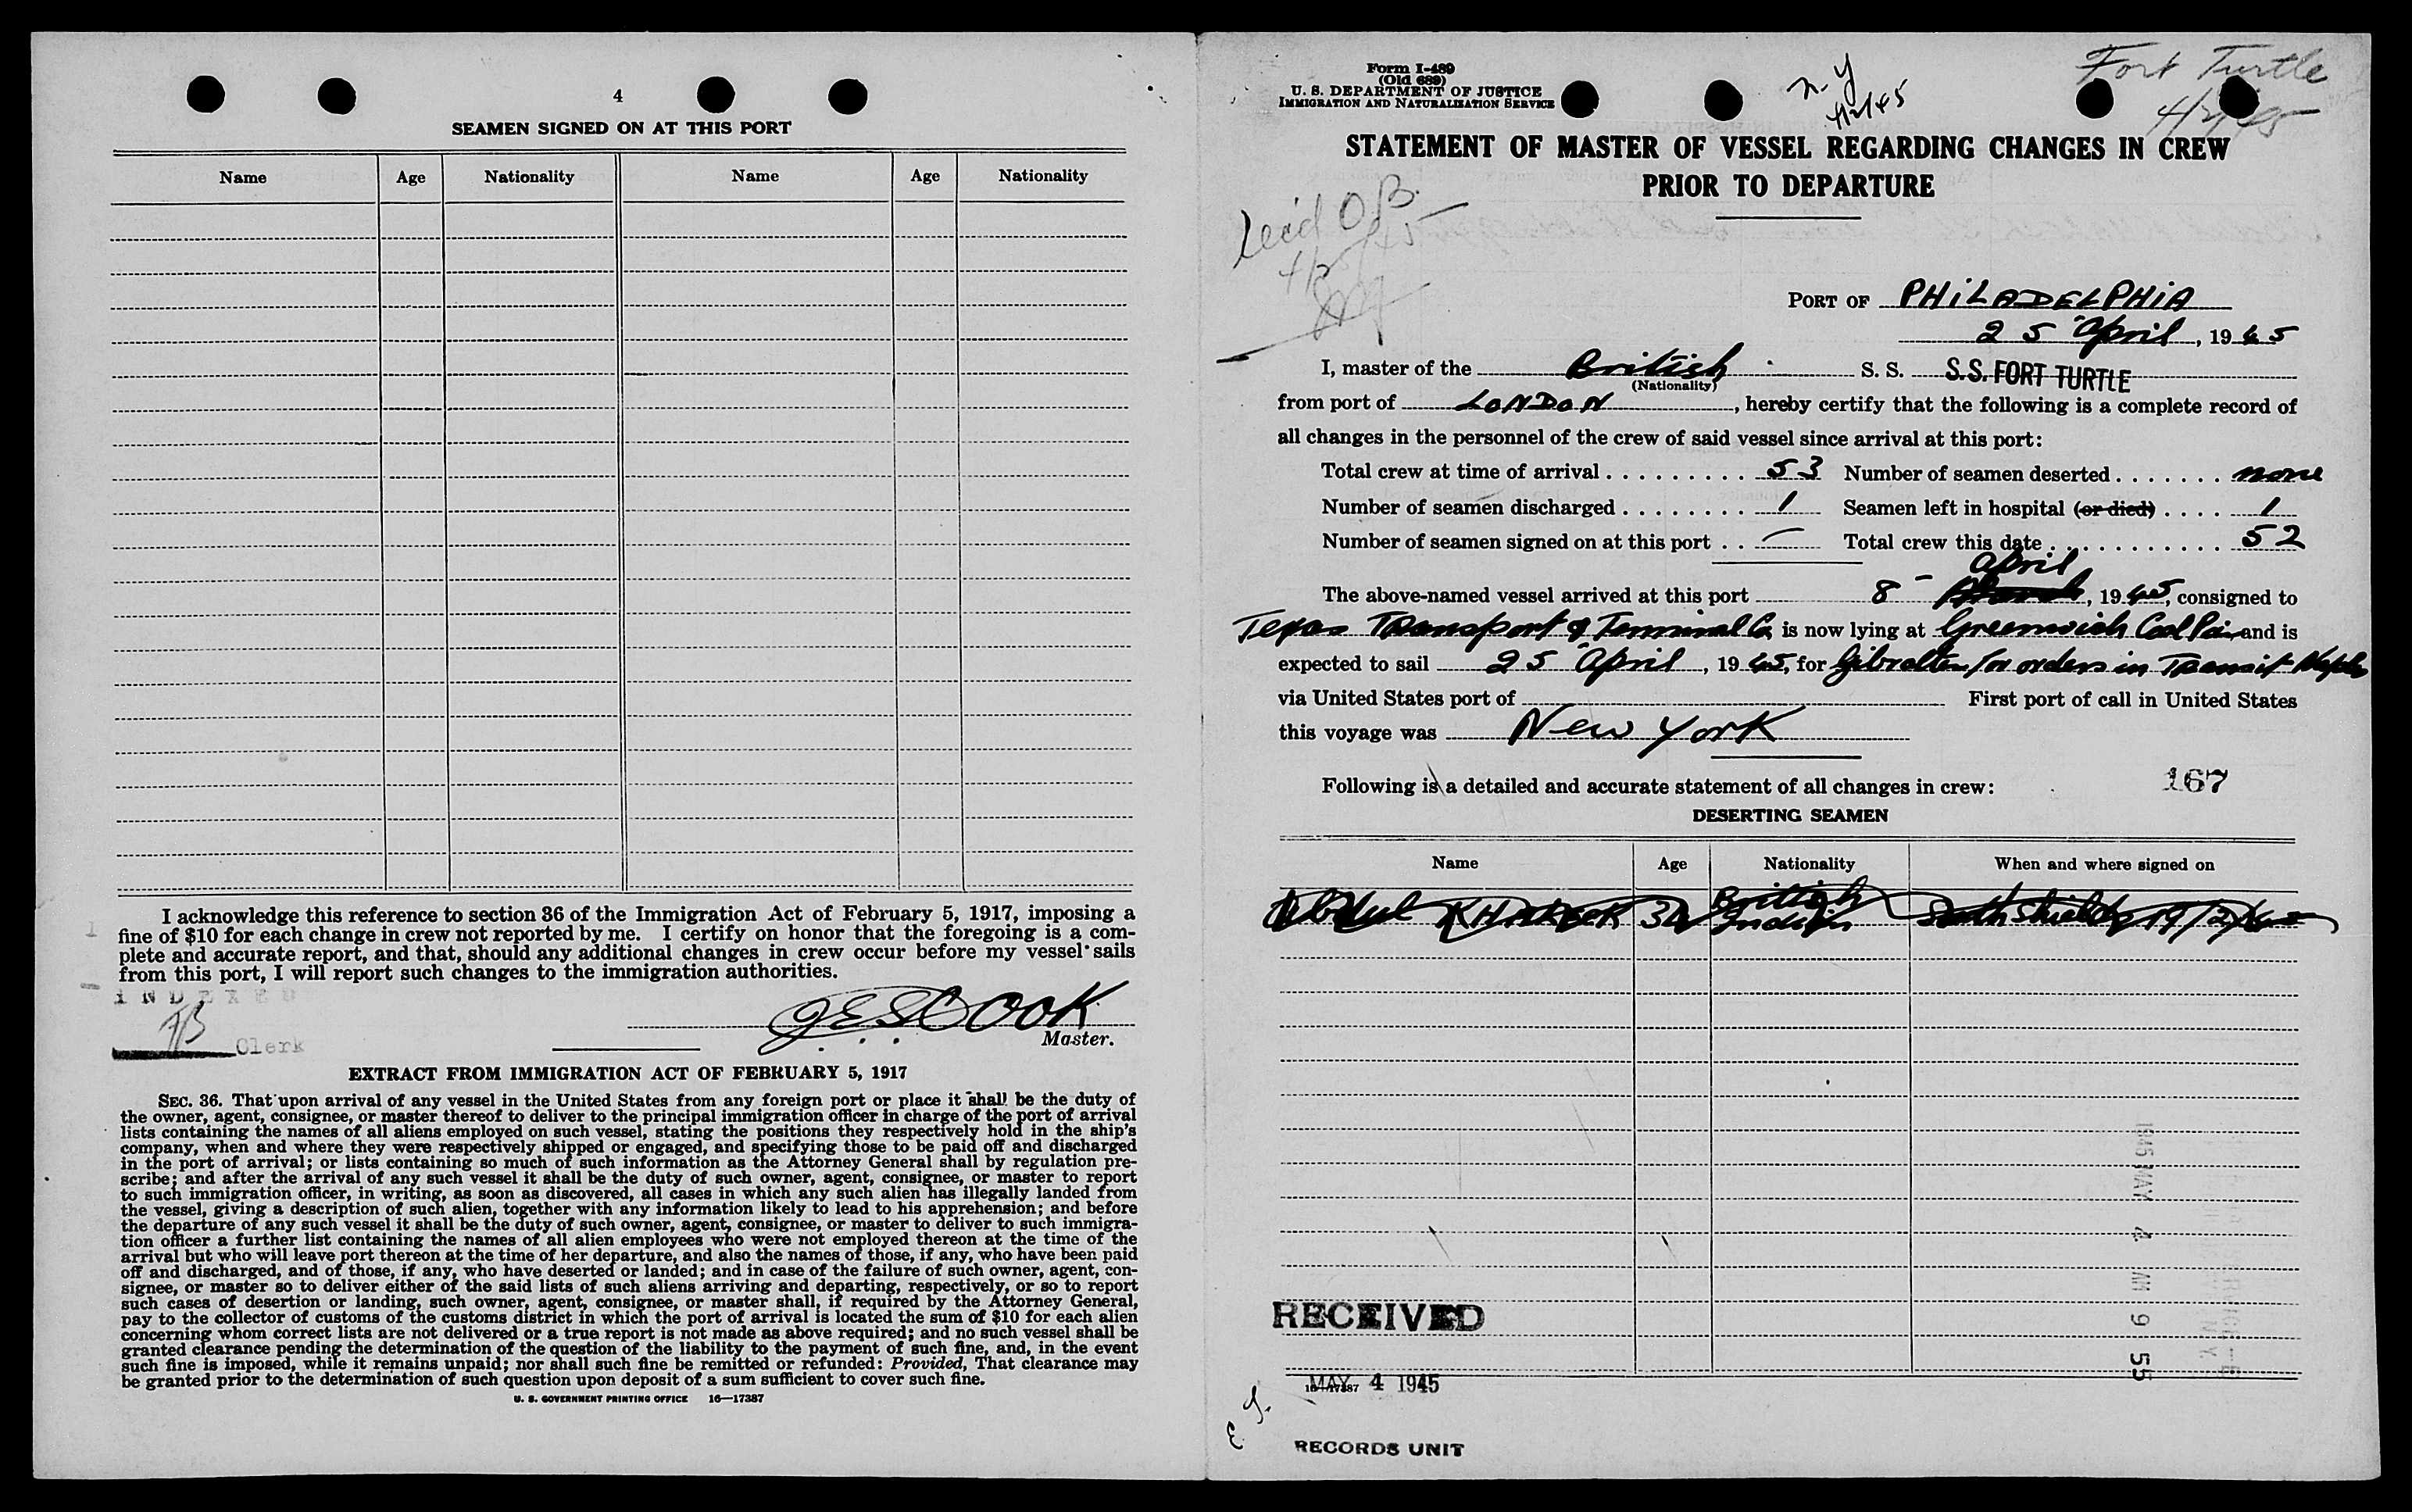 4
SEAMEN SIGNED ON AT THIS PORT
Name Age Nationality Name Age Nationality
I acknowledge this reference to section 36 of the Immigration Act of February 5, 1917, imposing a
fine of $10 for each change in crew not reported by me. I certify on honor that the foregoing is a com-
plete and accurate report, and that, should any additional changes in crew occur before my vessel sails
from this port, I will report such changes to the immigration authorities.
INDEXED
Clerk
J.E.S. COOK
Master.
EXTRACT FROM IMMIGRATION ACT OF FEBRUARY 5, 1917
SEC. 36. That upon arrival of any vessel in the United States from any foreign port or place it shall be the duty of
the owner, agent, consignee, or master thereof to deliver to the principal immigration officer in charge of the port of arrival
lists containing the names of all aliens employed on such vessel, stating the positions they respectively hold in the ship's
company, when and where they were respectively shipped or engaged, and specifying those to be paid off and discharged
in the port of arrival; or lists containing so much of such information as the Attorney General shall by regulation pre-
scribe; and after the arrival of any such vessel it shall be the duty of such owner, agent, consignee, or master to report
to such immigration officer, in writing, as soon as discovered, all cases in which any such alien has illegally landed from
the vessel, giving a description of such alien, together with any information likely to lead to his apprehension; and before
the departure of any such vessel it shall be the duty of such owner, agent, consignee, or master to deliver to such immigra-
tion officer a further list containing the names of all alien employees who were not employed thereon at the time of the
arrival but who will leave port thereon at the time of her departure, and also the names of those, if any, who have been paid
off and discharged, and of those, if any, who have deserted or landed; and in case of the failure of such owner, agent, con-
signee, or master so to deliver either of the said lists of such aliens arriving and departing, respectively, or so to report
such cases of desertion or landing, such owner, agent, consignee, or master shall, if required by the Attorney General,
pay to the collector of customs of the customs district in which the port of arrival is located the sum of $10 for each alien
concerning whom correct lists are not delivered or a true report is not made as above required; and no such vessel shall be
granted clearance pending the determination of the question of the liability to the payment of such fine, and, in the event
such fine is imposed, while it remains unpaid; nor shall such fine be remitted or refunded: Provided, That clearance may
be granted prior to the determination of such question upon deposit of a sum sufficient to cover such fine.
U. S. GOVERNMENT PRINTING OFFICE 16—17387
Form I-489
(Old 689)
U. S. DEPARTMENT OF JUSTICE
IMMIGRATION AND NATURALIZATION SERVICE
N.Y
4/2/45
Fort Turtle
STATEMENT OF MASTER OF VESSEL REGARDING CHANGES IN CREW
PRIOR TO DEPARTURE
PORT OF PHILADELPHIA
25 April, 1945
I, master of the British S. S. S.S. FORT TURTLE
(Nationality)
from port of LONDON, hereby certify that the following is a complete record of
all changes in the personnel of the crew of said vessel since arrival at this port:
Total crew at time of arrival . . . . . . . . . 53 Number of seamen deserted . . . . . . . none
Number of seamen discharged . . . . . . . . 1 Seamen left in hospital (or died) . . . . 1
Number of seamen signed on at this port . . — Total crew this date . . . . . . . . . . . 52
April
The above-named vessel arrived at this port 8 , 1945, consigned to
Texas Transport & Terminal Co is now lying at Greenwich Coal Pier and is
expected to sail 25 April, 1945, for Gibraltar for orders in Transit Naples
via United States port of First port of call in United States
this voyage was New York
Following is a detailed and accurate statement of all changes in crew:
167
DESERTING SEAMEN
Name Age Nationality When and where signed on
Abdul British Indian South Shields
1945 MAY 4 AM 9 55
RECEIVED
16—17387
MAY 4 1945
RECORDS UNIT